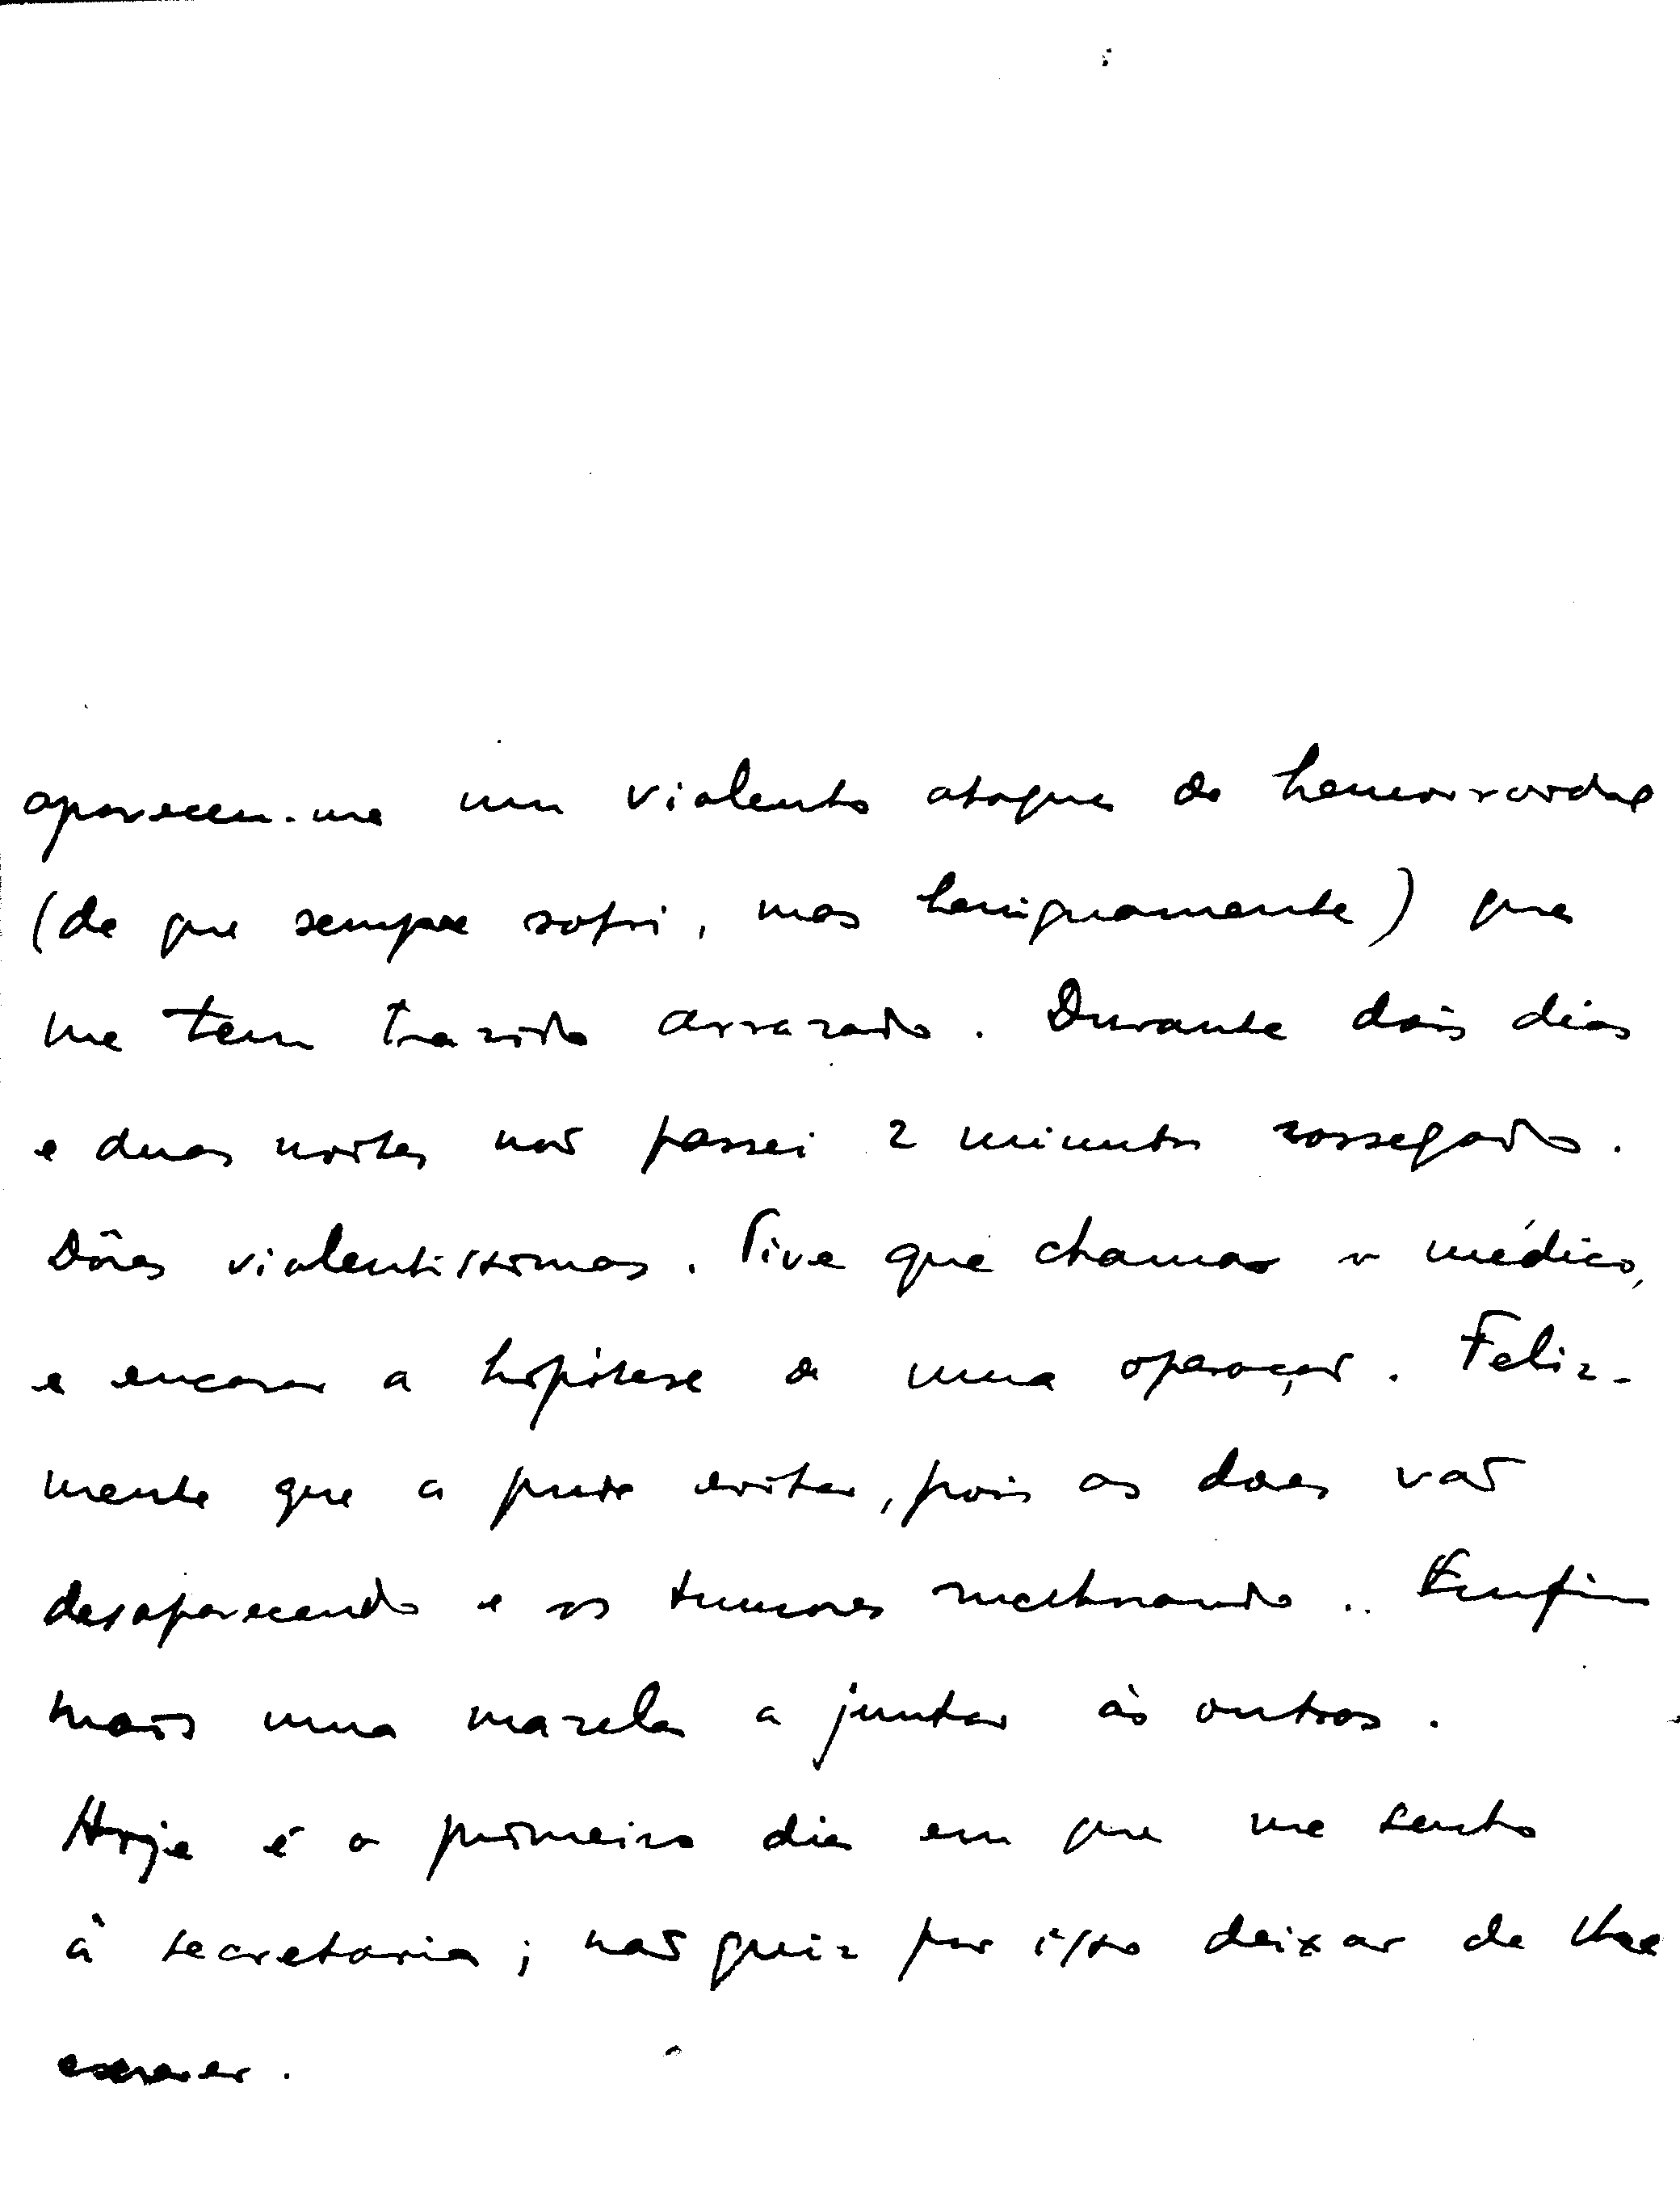 apareceu-me um violento ataque de hemorroidas
(de que sempre sofri, mas benignamente) que
me tem trazido arrazado. Durante dois dias
e duas noites não passei 2 minutos sossegado.
Dôres violentissimas. Tive que chamar o médico,
e encarar a hipótese de uma operação. Feliz-
mente que a pude evitar, pois as dores vão
desaparecendo e os tumores melhorando.. Enfim
mais uma mazela a juntar às outras.
Hoje é o primeiro dia em que me sento
à secretaria; não quiz por isso deixar de lhe
escrever.